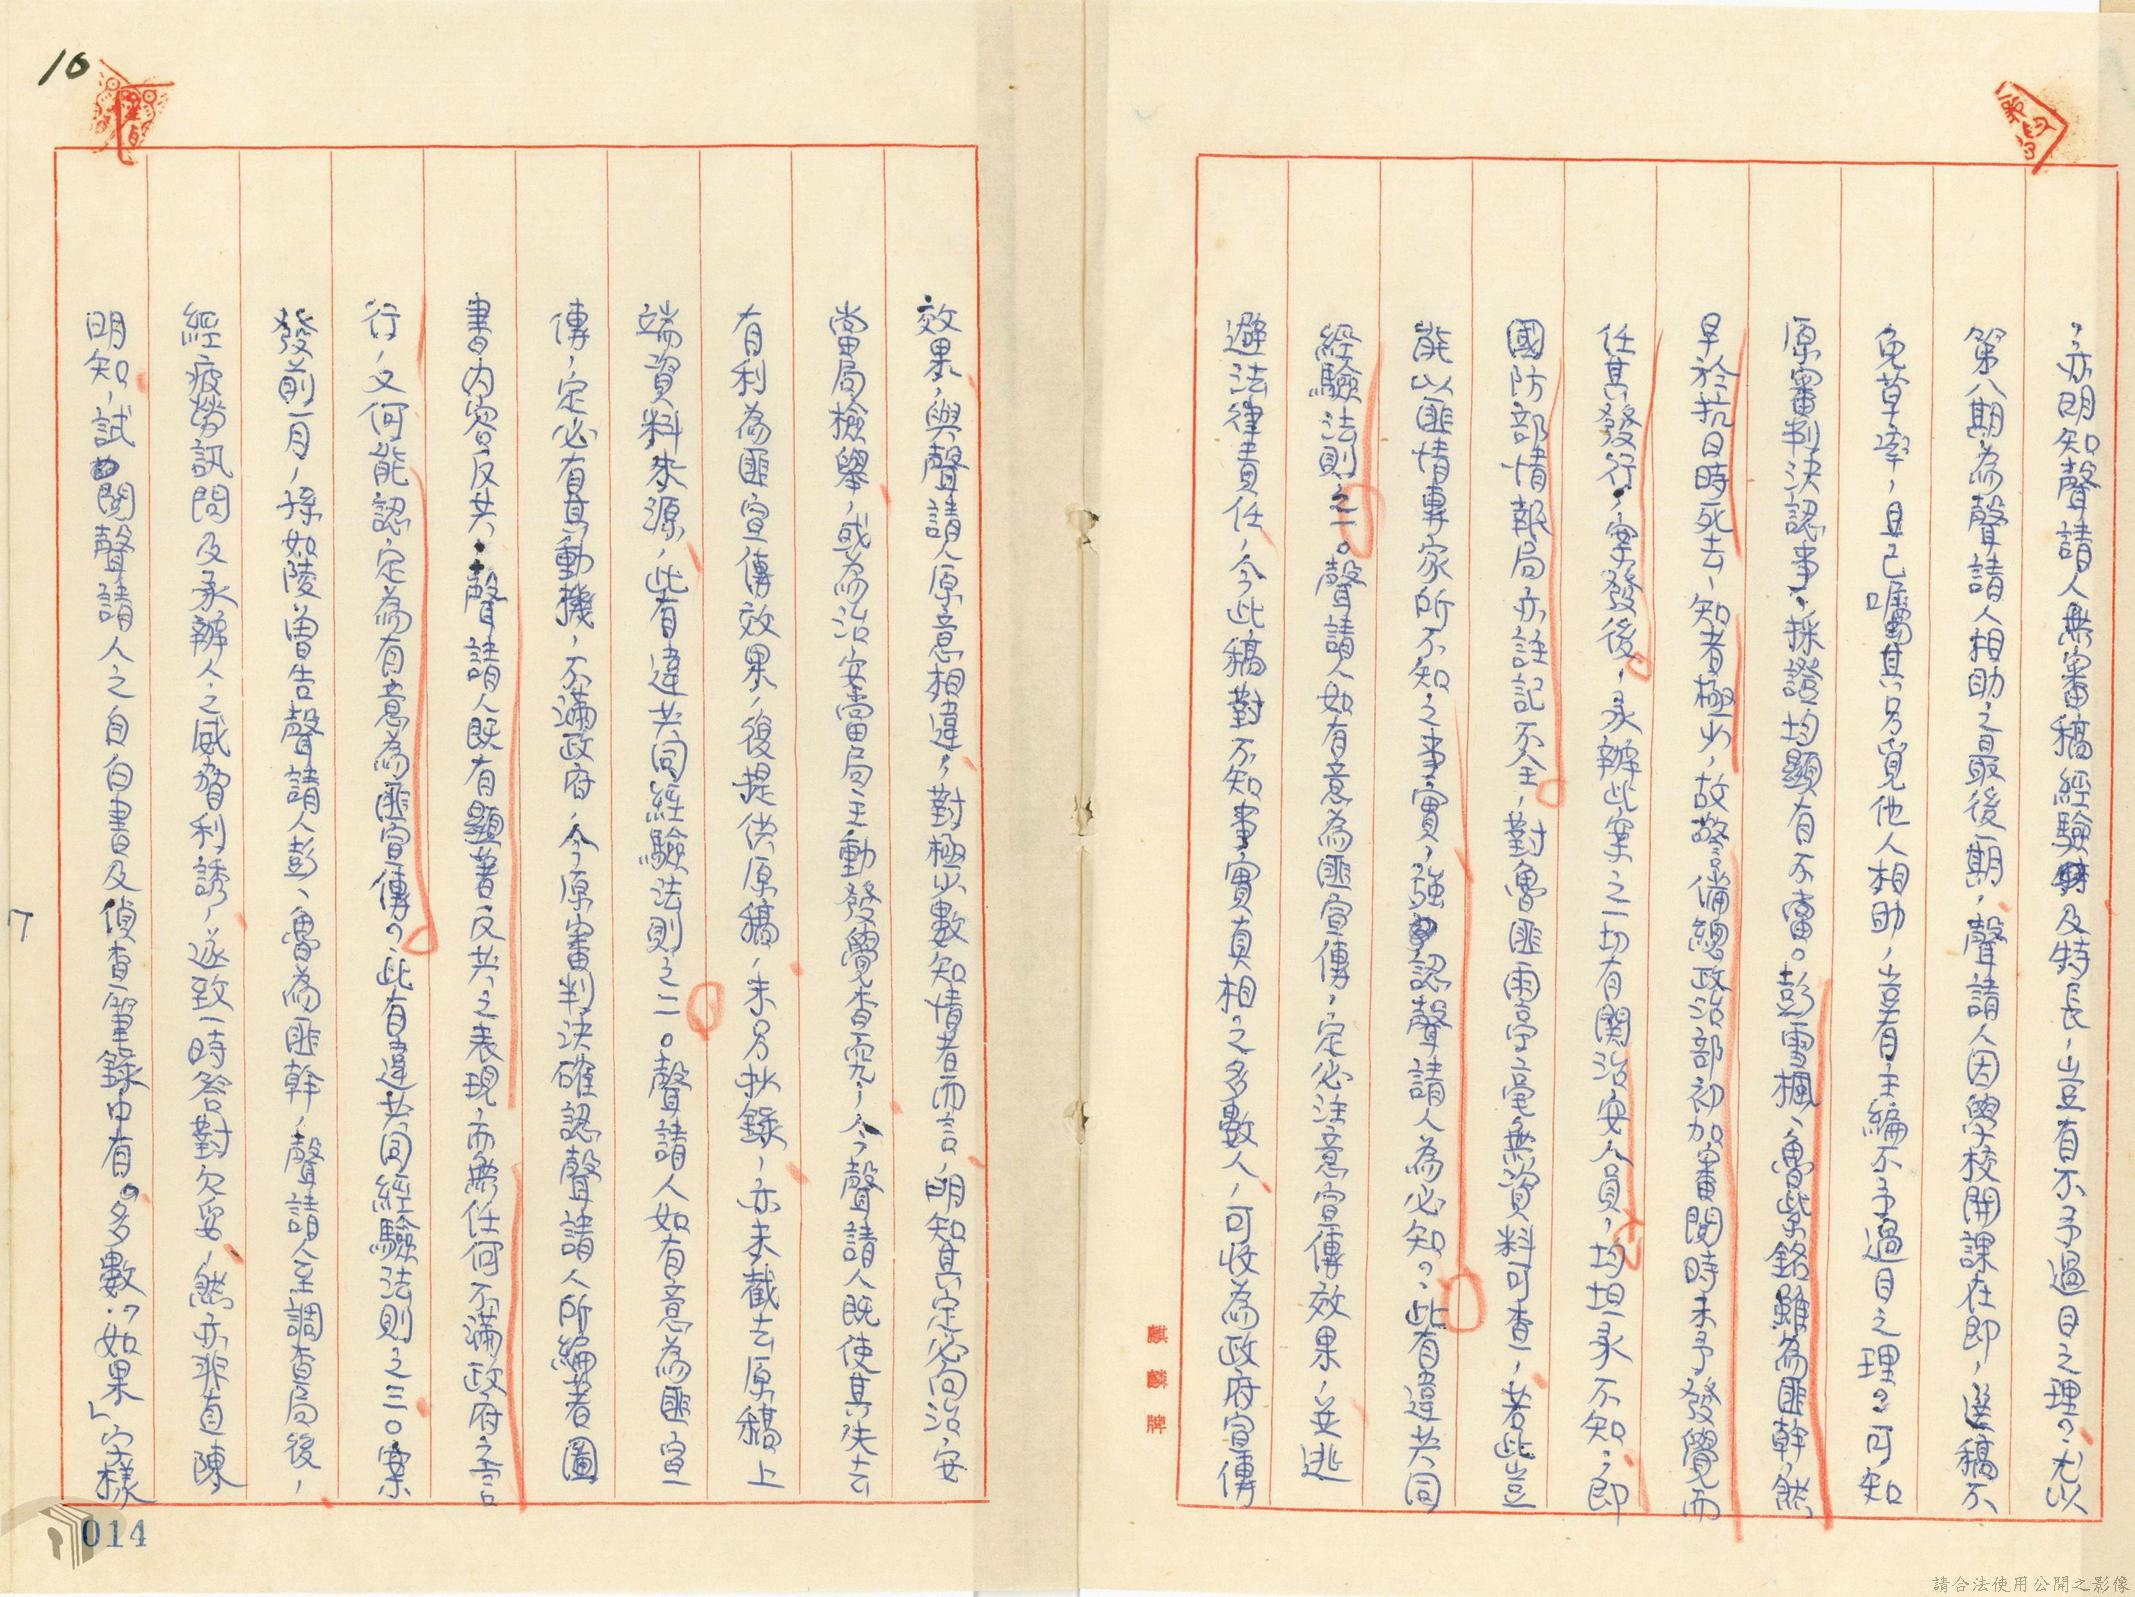 ，亦明知聲請人無審稿經驗及特長，豈有不予過目之理？尤以
第八期為聲請人相助之最後一期，聲請人因學校開課在即，選稿不
免草率，且已囑其另覓他人相助，豈有主編不予過目之理？可知
原審判決認事，採證均顯有不當。彭雪楓、魯紫銘雖為匪幹，然
早於抗日時死去，知者極少，故警備總政治部初加審閱時未予發覺而
任其發行，案發後，承辦此案之一切有關治安人員，均坦承不知，即
國防部情報局亦註記不全，對魯匪雨亭毫無資料可查，若此豈
能以匪情專家所不知之事實，強認聲請人為必知？此有違共同
經驗法則之一。聲請人如有意為匪宣傳，定必注意宣傳效果，並逃
避法律責任，今此稿對不知事實真相之多數人，可收為政府宣傳
效果，與聲請人原意相違，對極少數知情者而言，明知其定必向治安
當局檢舉，或為治安當局主動發覺查究，今聲請人既使其失去
有利為匪宣傳效果，復提供原稿，未另抄錄，亦未截去原稿上
端資料來源，此有違共同經驗法則之二。聲請人如有意為匪宣
傳，定必有其動機，不滿政府，今原審判決確認聲請人所編著圖
書內容反共，聲請人既有顯著反共之表現，而無任何不滿政府之言
行，又何能認定為有意為匪宣傳？此有違共同經驗法則之三。案
發前一月，孫如陵曾告聲請人彭、魯為匪幹，聲請人至調查局後，
經疲勞訊問及承辦人之威脅利誘，遂致一時答對欠妥，然亦非直陳
明知，試閱聲請人之自白書及偵查筆錄中有多數「如果」字樣
麒麟牌
10
7
014
請合法使用公開之影像